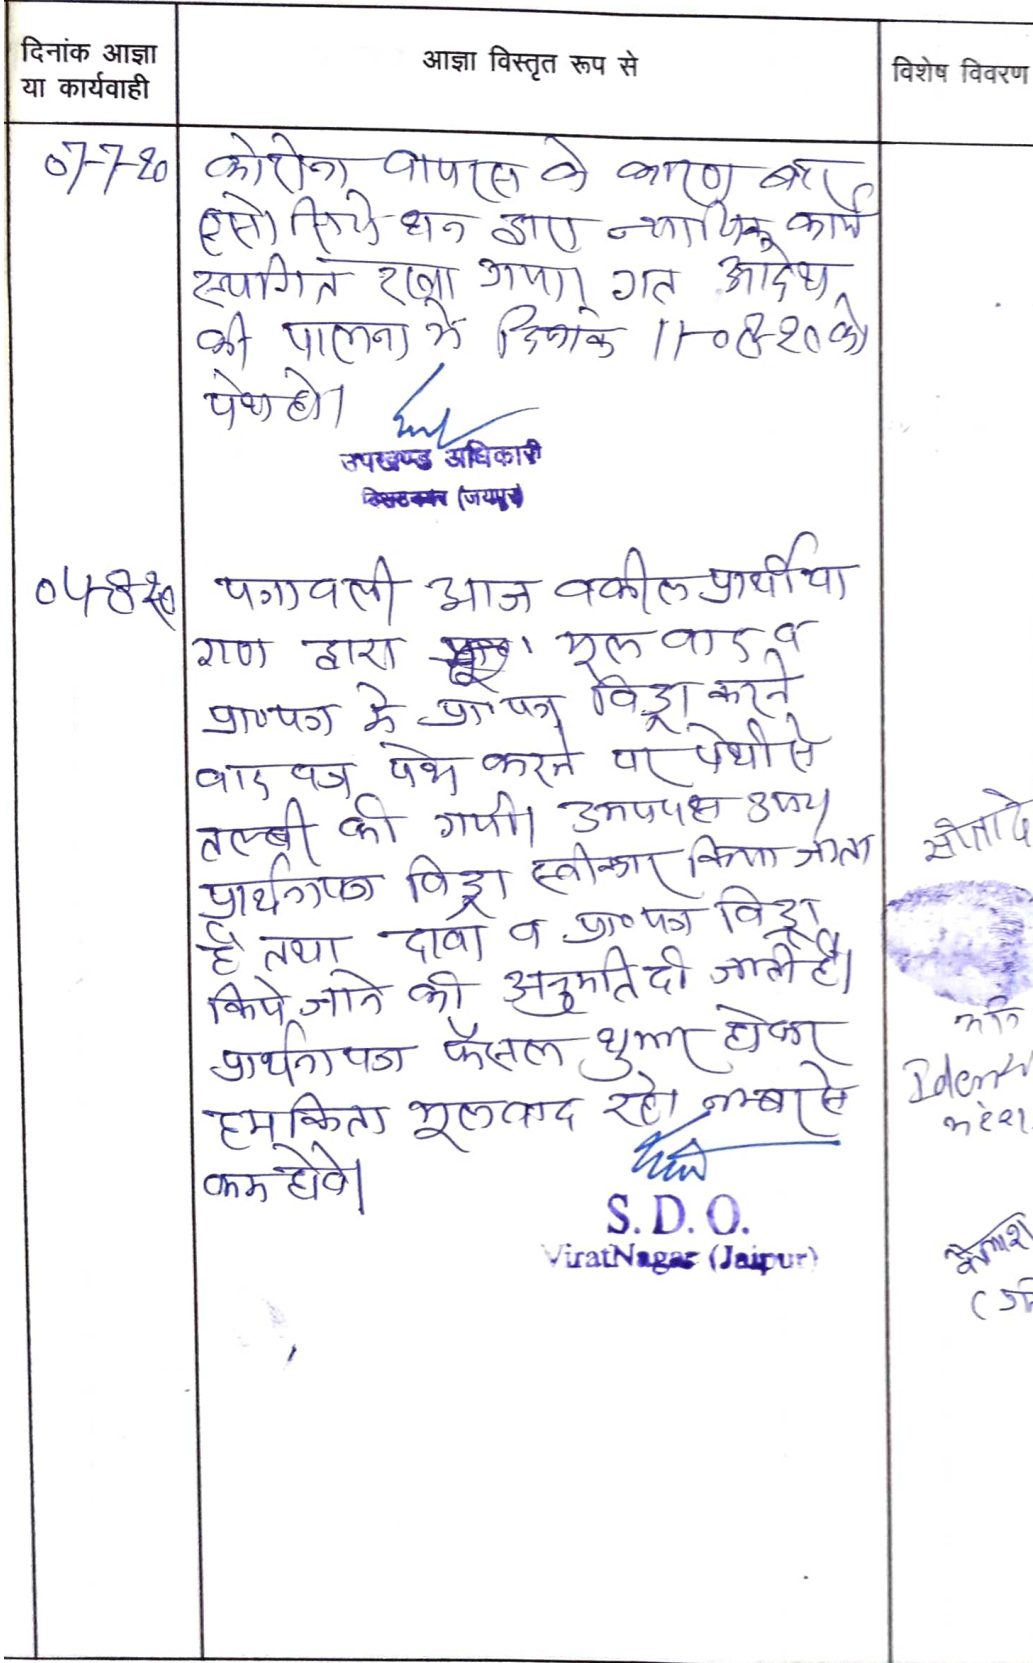 दिनांक आज्ञा
या कार्यवाही
आज्ञा विस्तृत रूप से
विशेष विवरण
07-7-20
कोरोना वायरस के कारण बार
द्वारा न्यायिक कार्य
स्थगित रखा गया। गत आदेश
की पालना में दिनांक 11-08-20 को
पेश हो।
उपखण्ड अधिकारी
(जयपुर)
04-8-20
पत्रावली आज वकील प्रार्थीया
गण द्वारा मूल वाद व
प्रा०पत्र में प्रा०पत्र विड्रा करने
पेश करने पर पेशी से
तलबी की गयी।
प्रार्थनापत्र विड्रा स्वीकार किया जाता
है तथा दावा व प्रा०पत्र विड्रा
किये जाने की अनुमति दी जाती है।
प्रार्थनापत्र फैसल शुमार होकर
मूलवाद रहे। नम्बर से
कम होवे।
S. D. O.
ViratNagar (Jaipur)